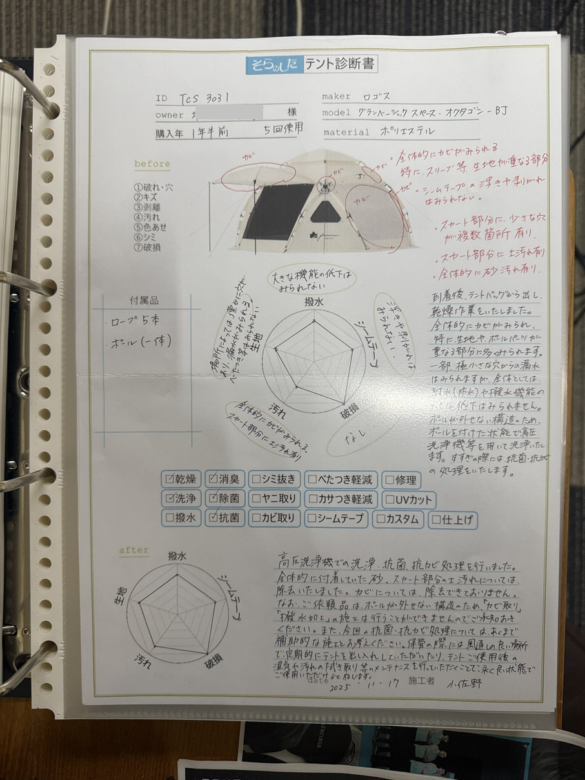 そらのした テント診断書
ID TCS 3031
maker ロゴス
owner 様
model グランベーシック スペース・オクタゴン-BJ
購入年 1年半前 5回使用
material ポリエステル
before
①破れ・穴
②キズ
③剥離
④汚れ
⑤色あせ
⑥シミ
⑦破損
カビ
カビ
カビ
カビ
カビ
・全体的にカビがみられる
特に、スリーブ等 生地が重なる部分
・シームテープの浮きや剥がれ
はみられない。
・スカート部分に 小さな穴
が複数箇所有り
・スカート部分に土汚れ有り
・全体的に砂汚れ有り
付属品
ロープ5本
ポール(一体)
大きな機能の低下は
みられない
撥水
シームテープ
破損
汚れ
生地
浮きや剥がれは
みられない
なし
全体的にカビがみられる。
スカート部分に土汚れ有り
到着後、テントバッグから出し、
乾燥作業をいたしました。
全体的にカビがみられ、
特に生地や、ポールパーツが
重なる部分に多くみられます。
一部 極小さな穴からの漏水
はみられますが、全体としては
耐水(防水)や撥水機能の
低下はみられません。
ポールが外せない構造のため、
ポールを付けた状態で高圧
洗浄機等を用いて洗浄いたし
ます。すすぎの際には抗菌・抗カビ
の処理をいたします。
☑乾燥 ☑消臭 □シミ抜き □べたつき軽減 □修理
☑洗浄 ☑除菌 □ヤニ取り □カサつき軽減 □UVカット
□撥水 ☑抗菌 □カビ取り □シームテープ □カスタム □仕上げ
after
撥水
シームテープ
破損
汚れ
生地
高圧洗浄機での洗浄、抗菌 抗カビ処理を行いました。
全体的に付着していた砂、スカート部分の土汚れについては、
除去いたしました。カビについては、除去できておりません。
なお、ご依頼品は、ポールが外せない構造のため、「カビ取り」
「撥水加工」の施工は行うことができませんのでご承知おき
ください。また、今回の抗菌・抗カビ処理については あくまで
補助的な施工とお考えください。保管の際には風通しの良い場所
で、定期的にテントを出し入れしていただいたり、テントご使用後の
湿気や汚れの拭き取り等のメンテナンスを行っていただくことで、永く良い状態で
ご使用いただけるかと存じます。
2025. 11. 17 施工者 小佐野